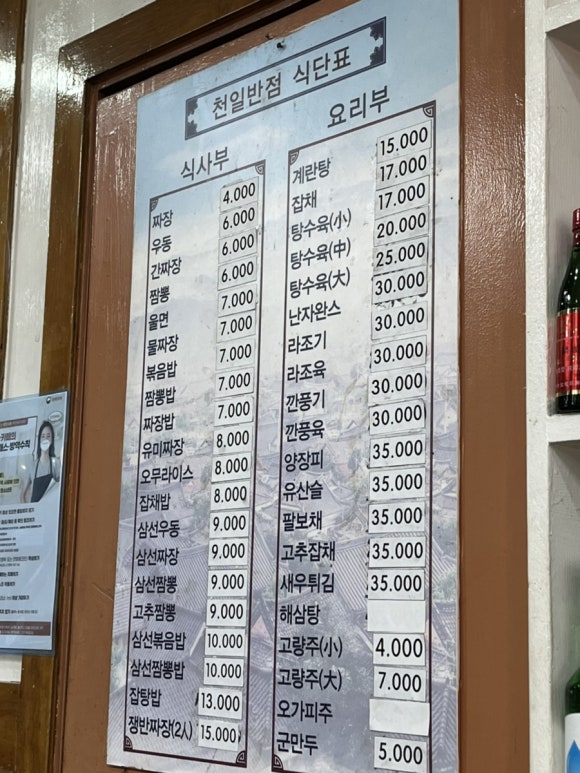 천일반점 식단표
식사부
짜장 4.000
우동 6.000
간짜장 6.000
짬뽕 6.000
울면 7.000
물짜장 7.000
볶음밥 7.000
짬뽕밥 7.000
짜장밥 7.000
유미짜장 8.000
오무라이스 8.000
잡채밥 8.000
삼선우동 9.000
삼선짜장 9.000
삼선짬뽕 9.000
고추짬뽕 9.000
삼선볶음밥 10.000
삼선짬뽕밥 10.000
잡탕밥 13.000
쟁반짜장(2人) 15.000
요리부
계란탕 15.000
잡채 17.000
탕수육(小) 17.000
탕수육(中) 20.000
탕수육(大) 25.000
난자완스 30.000
라조기 30.000
라조육 30.000
깐풍기 30.000
깐풍육 30.000
양장피 35.000
유산슬 35.000
팔보채 35.000
고추잡채 35.000
새우튀김 35.000
해삼탕
고량주(小) 4.000
고량주(大) 7.000
오가피주
군만두 5.000